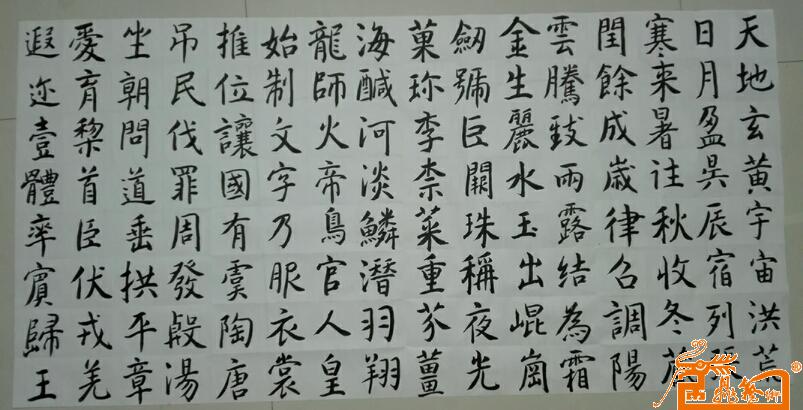 天地玄黃宇宙洪荒
日月盈昃辰宿列張
寒来暑往秋收冬藏
閏餘成歲律召調陽
雲騰致雨露結為霜
金生麗水玉出崐崗
劒號巨闕珠稱夜光
菓珍李柰菜重芥薑
海醎河淡鱗潛羽翔
龍師火帝鳥官人皇
始制文字乃服衣裳
推位讓國有虞陶唐
吊民伐罪周發殷湯
坐朝問道垂拱平章
愛育黎首臣伏戎羌
遐迩壹體率賓歸王